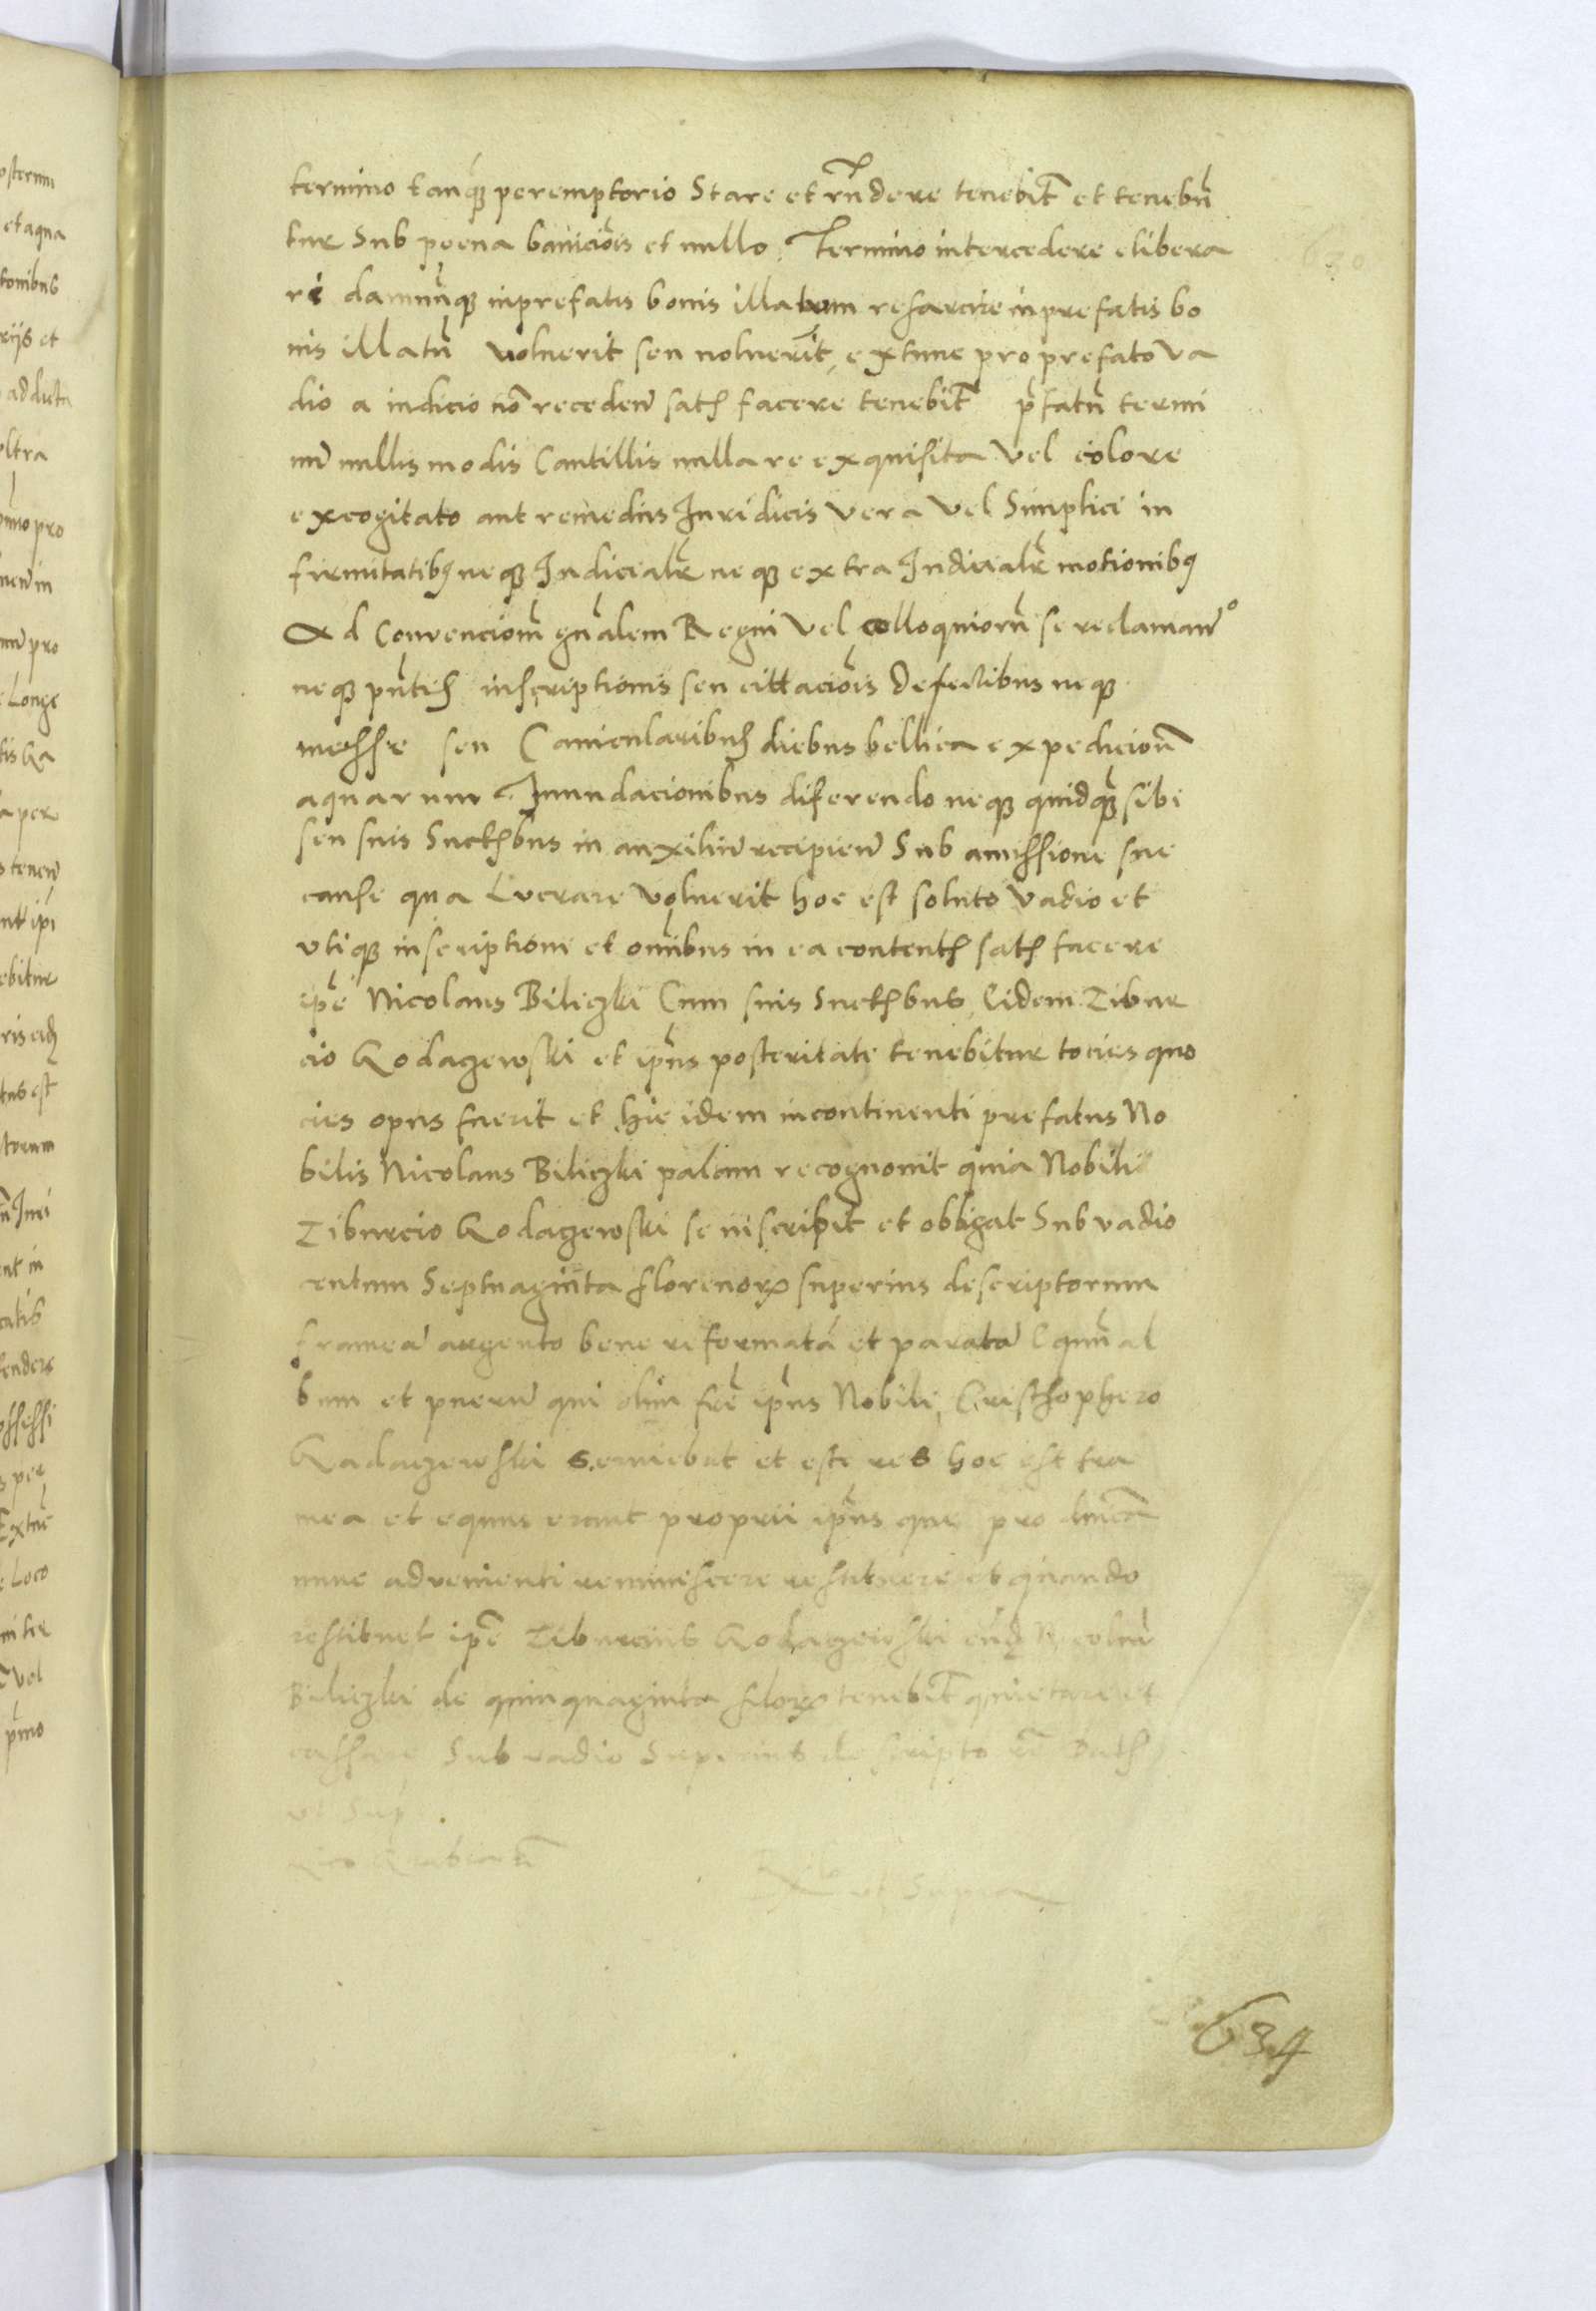 termino tanq̄ꝫ peremptorio Stare et rn̄dere tenebit̄ et tenebn̄
tur Sub poena banicio̅is et nullo Termino intercedere elibera
ri damnūqꝫ in prefatis bonis illatum resarcire in prefatis bo
nis illatū voluerit seu noluerit, extunc pro prefato va
dio a iudicio no̅ receden̅ satis facere tenebit̄ pr̄fatū termi
nū nullis modis Cantillis nulla re exquisita vel colore
excogitato aut remediis Iuridicis vera vel Simplici in
firmitatibꝫ neqꝫ Iudicialr̄ neqꝫ extra Iudicialr̄ motionibꝫ
Ad Convencionē gn̄alem Regni vel colloquiorū se reclaman̄°
neqꝫ pn̄tis inscriptionis seu cittacio̅is defectibus neqꝫ
messe seu Canicularibus diebus bellica expedicion̄
aquarum Inundacionibus diferendo neqꝫ quidqꝫ sibi
seu suis Succesbus in auxiliū recipien̄ Sub amissione sue
cause qua Lucrare voluerit hoc est soluto vadio et
utiqꝫ inscriptioni et om̄ibus in ea contentis satis facere
ip̄e Nicolaus Biliczki Cum suis Succesbus Eidem Tibur
cio Kodaczewski et ip̄ius posteritati tenebitur tocies quo
cies opus fuerit et hic idem incontinenti prefatus No
bilis Nicolaus Biliczki palam recognouit quia Nobili
Tiburcio Kodaczewski se inscribit et obligat Sub vadio
centum Septuaginta florenorꝫ superius descriptorum
frameā argento bene reformatā et paratā Equū al
bum et puerū qui olim fr̄e ip̄ius Nobili Cristhophero
Kadaczewski Seruiebat et iste res hoc est fra
mea et equus erant proprii ip̄ius que pro dn̄ica
nunc advenienti reminescere restituere et quando
restituet ip̄e Tiburcius Kodaczewski eūdꝫ Nicolaū
Biliczki de quinquaginta florꝫ tenebit̄ quietare et
cassare Sub vadio Superius descripto
ut Sup
ut Supra
634